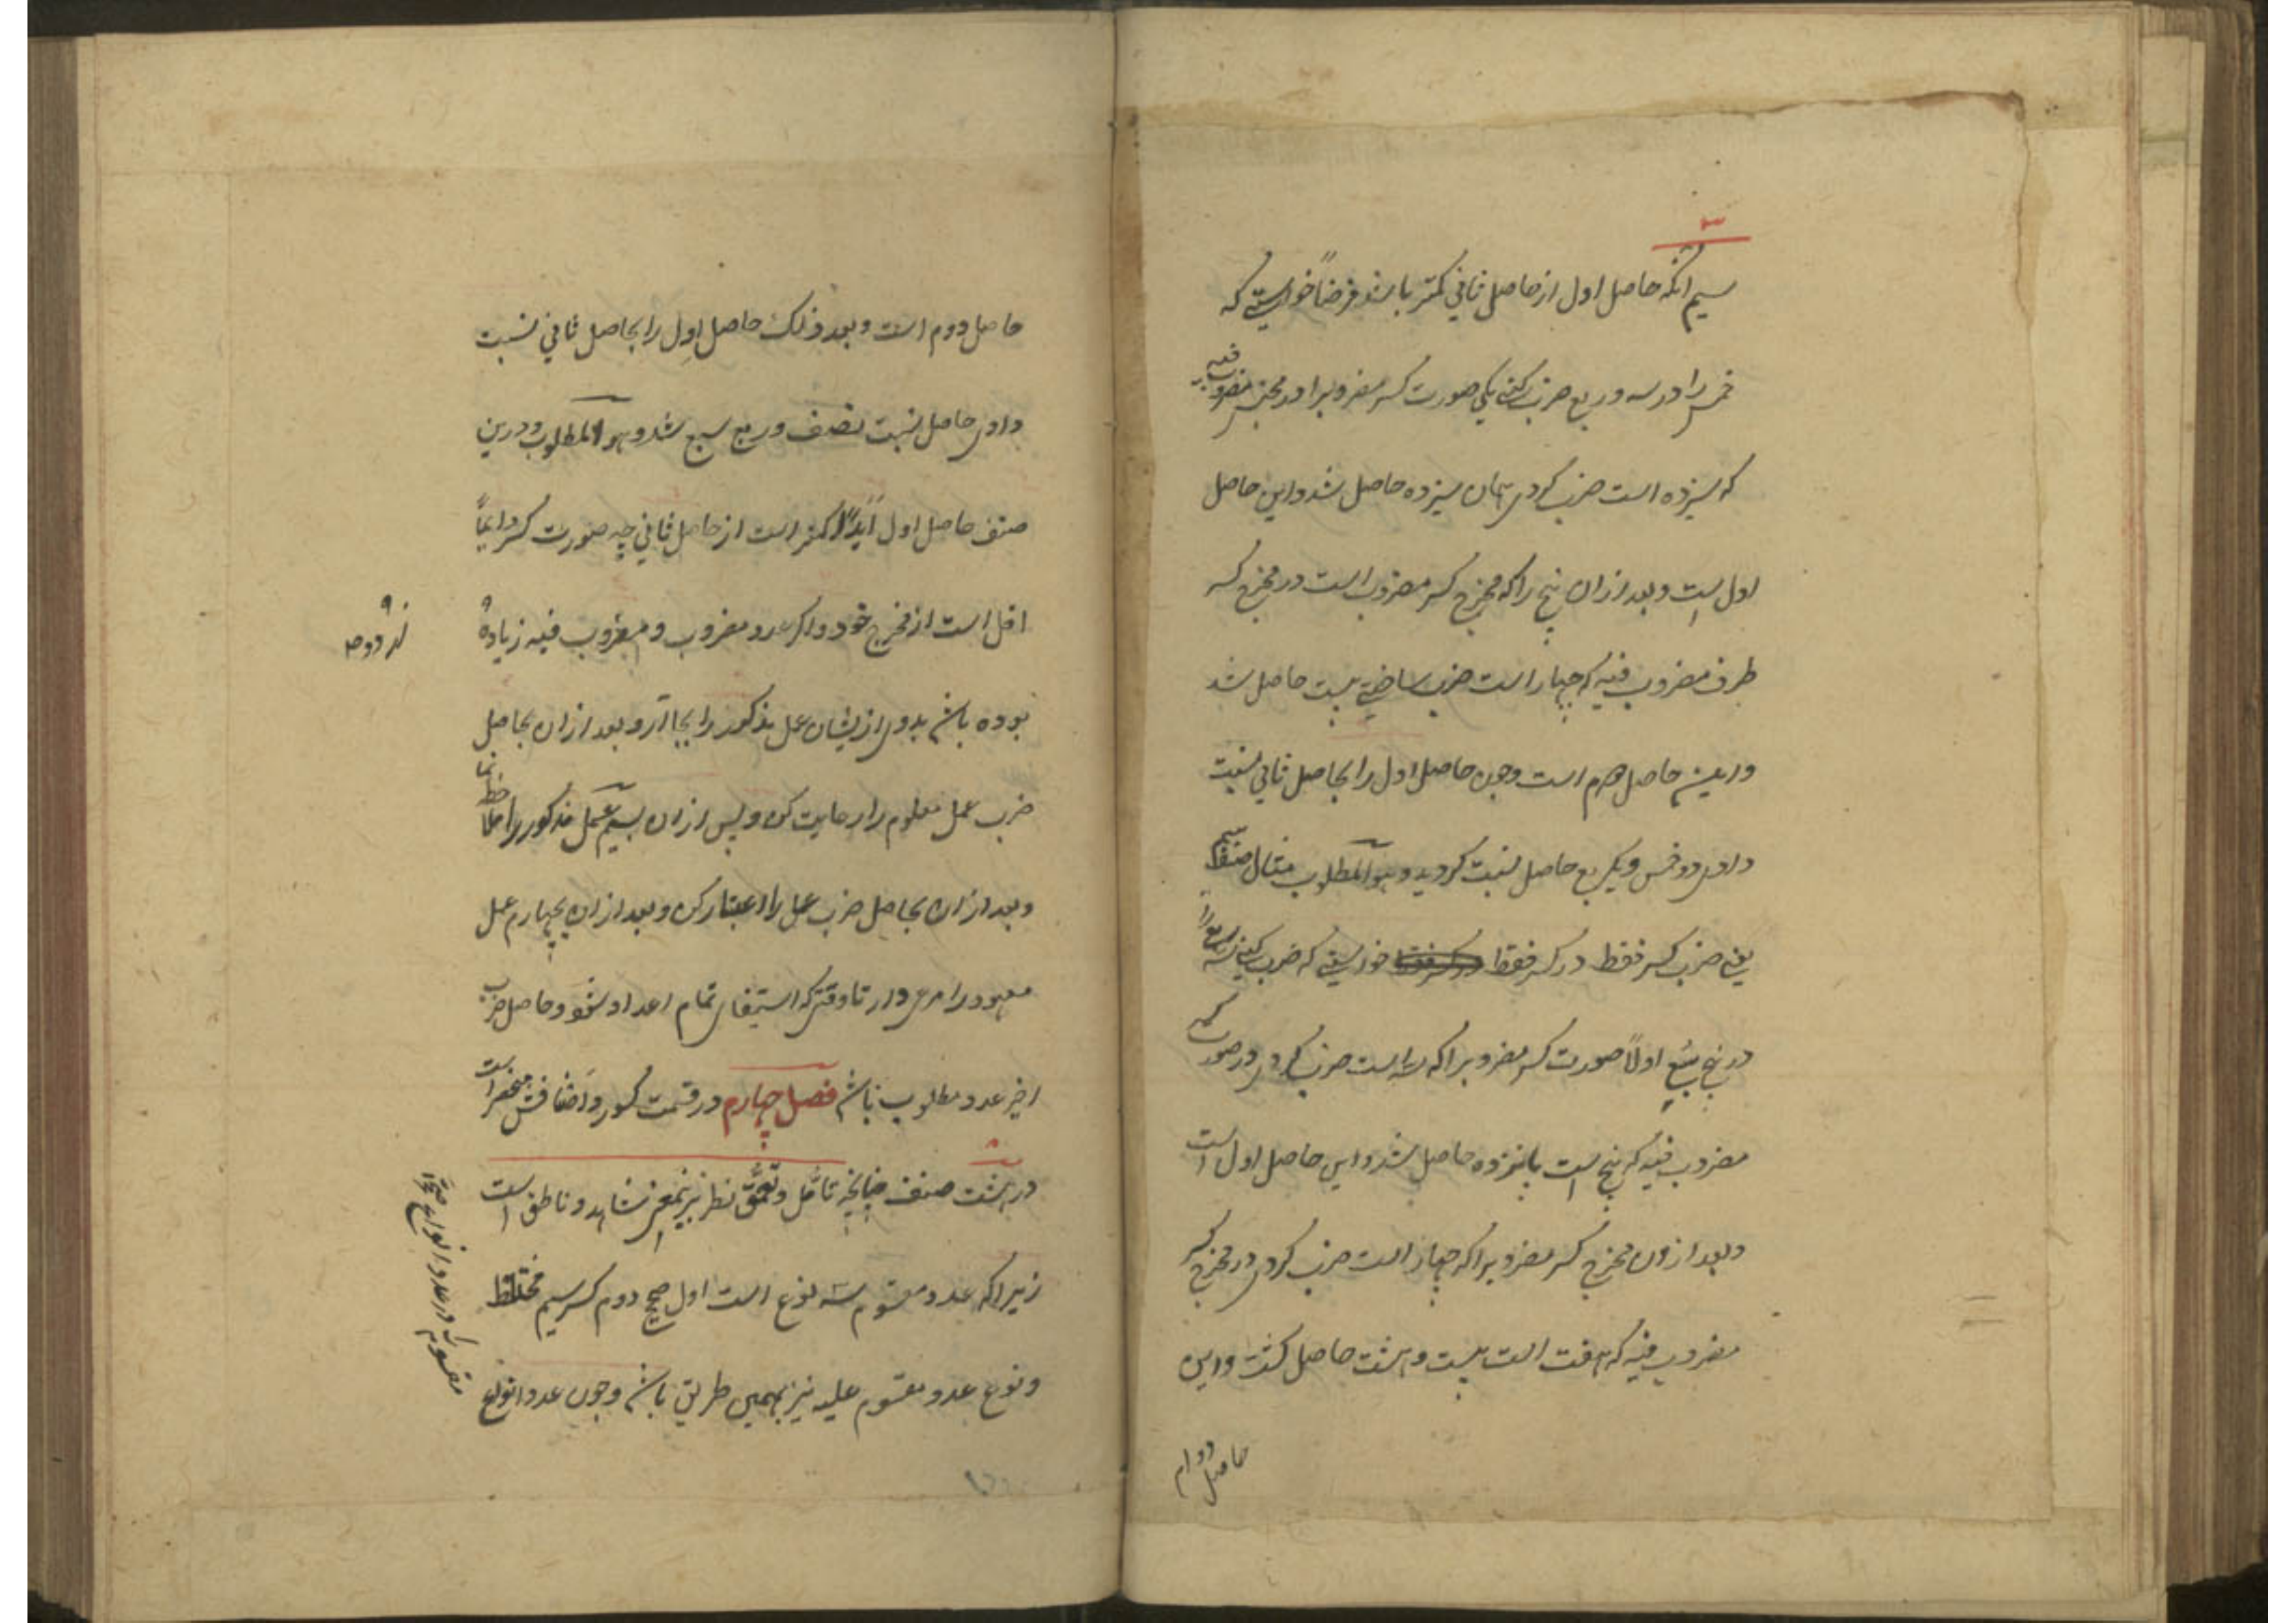 سیم آنکه حاصل اول از حاصل ثانی کمتر باشد فرضاً خواستی که
خمس را در سه و ربع ضرب کنی یکی صورت کسر مضروبرا در مجنس مضروب فیه
که سیزده است ضرب کردی همان سیزده حاصل شد و این حاصل
اول است و بعد ازان پنج را که مخرج کسر مضروب است در مخرج کسر
طرف مضروب فیه که چهار است ضرب ساختی بیست حاصل شد
و این حاصل دوم است و چون حاصل اول را بحاصل ثانی نسبت
دادی دو خمس و یک ربع حاصل نسبت کردید و هو المطلوب مثال صنف
یعنی ضرب کسر فقط در کسر فقط خواستی که ضرب کنی سه ربع را
در پنج سبع اولاً صورت کسر مضروبرا که سه است ضرب کردی در صورت کسر
مضروب فیه که پنج است پانزده حاصل شد و این حاصل اول است
و بعد ازان مخرج کسر مضروبرا که چهار است ضرب کردی در مخرج کسر
مضروب فیه که هفت است بیست و هشت حاصل کشت و این
حاصل دوم
حاصل دوم است و بعد ذلک حاصل اول را بحاصل ثانی نسبت
دادی حاصل نسبت نصف و ربع سبع شد و هو المطلوب و درین
صنف حاصل اول ابداً کمتر است از حاصل ثانی چه صورت کسر دایماً
اقل است از مخرج خود و اکر عدد مضروب و مضروب فیه زیاده
از دو
بوده باشد بدوی ازیشان عمل مذکور را بجا آر و بعد ازان بحاصل
ضرب عمل معلوم را رعایت کن و پس ازان بسیم عمل مذکور را
و بعد ازان بحاصل ضرب عمل را اعتبار کن و بعد ازان بچهارم عمل
معهود را مرعی دار تا وقتی که استیفای تمام اعداد شود و حاصل ضرب
اخیر عدد مطلوب باشد فصل چهارم در قسمت کسور و اصنافش منحصر است
در هشت صنف چنانچه تأمل و تعمق نظر برینمعنی شاهد و ناطق است
زیرا که عدد مقسوم سه نوع است اول صحیح دوم کسر سیم مختلط
و نوع عدد مقسوم علیه نیز بهمین طریق باشد و چون عدد انواع
مقسوم را در عدد انواع